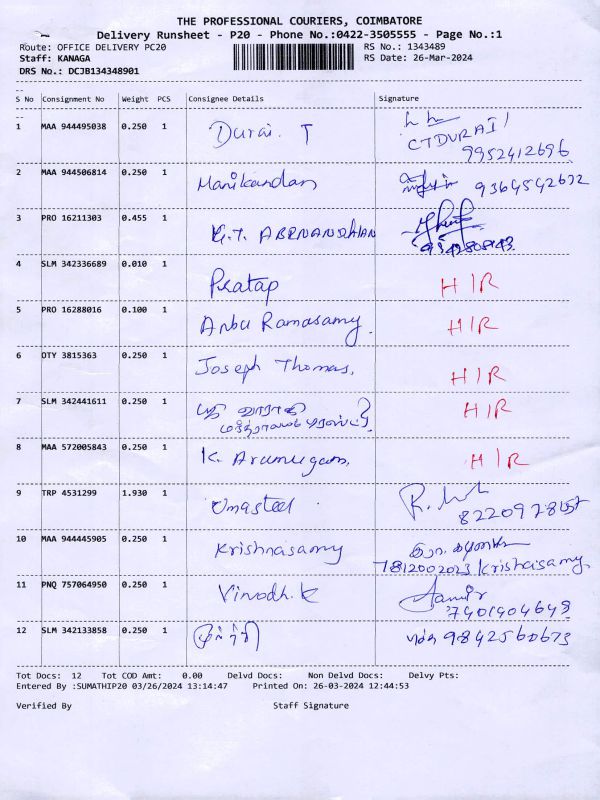 THE PROFESSIONAL COURIERS, COIMBATORE
Delivery Runsheet - P20 - Phone No.:0422-3505555 - Page No.:1
Route: OFFICE DELIVERY PC20 RS No.: 1343489
Staff: KANAGA RS Date: 26-Mar-2024
DRS No.: DCJB134348901
S No Consignment No Weight PCS Consignee Details Signature
1 MAA 944495038 0.250 1 Durai. T
CTDURAI
9952412696
2 MAA 944506814 0.250 1 Manikandan
3 PRO 16211303 0.455 1 G.T.
4 SLM 342336689 0.010 1 Pratap H/R
5 PRO 16288016 0.100 1 Anbu Ramasamy. H/R
6 OTY 3815363 0.250 1 Joseph Thomas, H/R
7 SLM 342441611 0.250 1 H/R
8 MAA 572005843 0.250 1 K. Arumugam, H/R
9 TRP 4531299 1.930 1 Umasteel
10 MAA 944445905 0.250 1 Krishnasamy
7812002023 Krishaisamy
11 PNQ 757064950 0.250 1 Vinodh.K
7401404648
12 SLM 342133858 0.250 1 9842560673
Tot Docs: 12 Tot COD Amt: 0.00 Delvd Docs: Non Delvd Docs: Delvy Pts:
Entered By :SUMATHIP20 03/26/2024 13:14:47 Printed On: 26-03-2024 12:44:53
Verified By Staff Signature